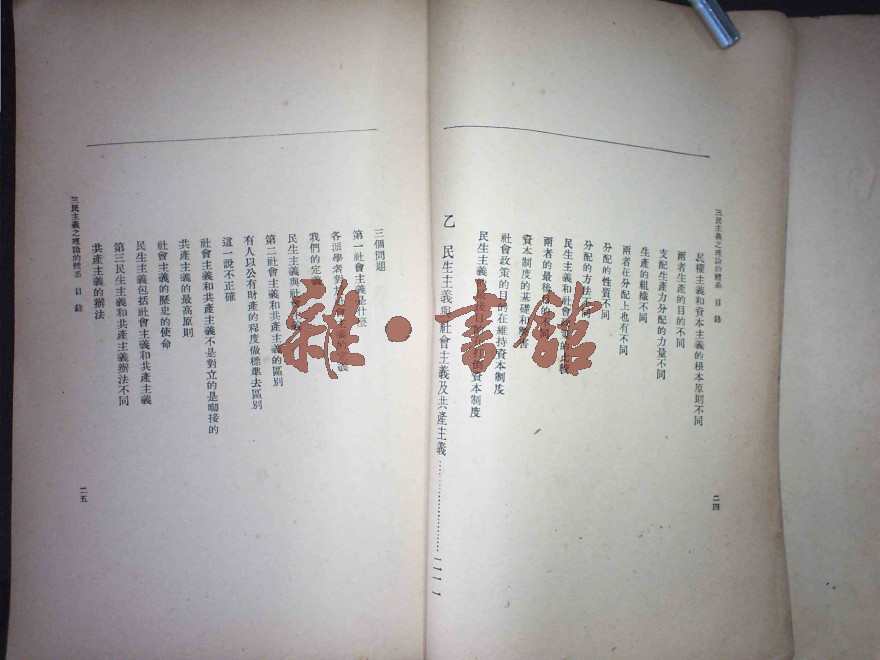 三民主義之理論的體系 目錄
民權主義和資本主義的根本原則不同
兩者生產的目的不同
支配生產力分配的力量不同
生產的組織不同
兩者在分配上也有不同
分配的性質不同
分配的方法不同
民生主義和社會政策的比較
兩者的最後目的
資本制度的基礎和弊害
社會政策的目的在維持資本制度
民生主義 資本制度
乙 民生主義與社會主義及共產主義……………………二一一
二四
三個問題
第一社會主義是什麼
各派學者對社會主義的定義
我們的定義
民生主義與社會主義
第二社會主義和共產主義的區別
有人以公有財產的程度做標準去區別
這一說不正確
社會主義和共產主義不是對立的是啣接的
共產主義的最高原則
社會主義的歷史的使命
民生主義包括社會主義和共產主義
第三民生主義和共產主義辦法不同
共產主義的辦法
三民主義之理論的體系 目錄
二五
雜·書館